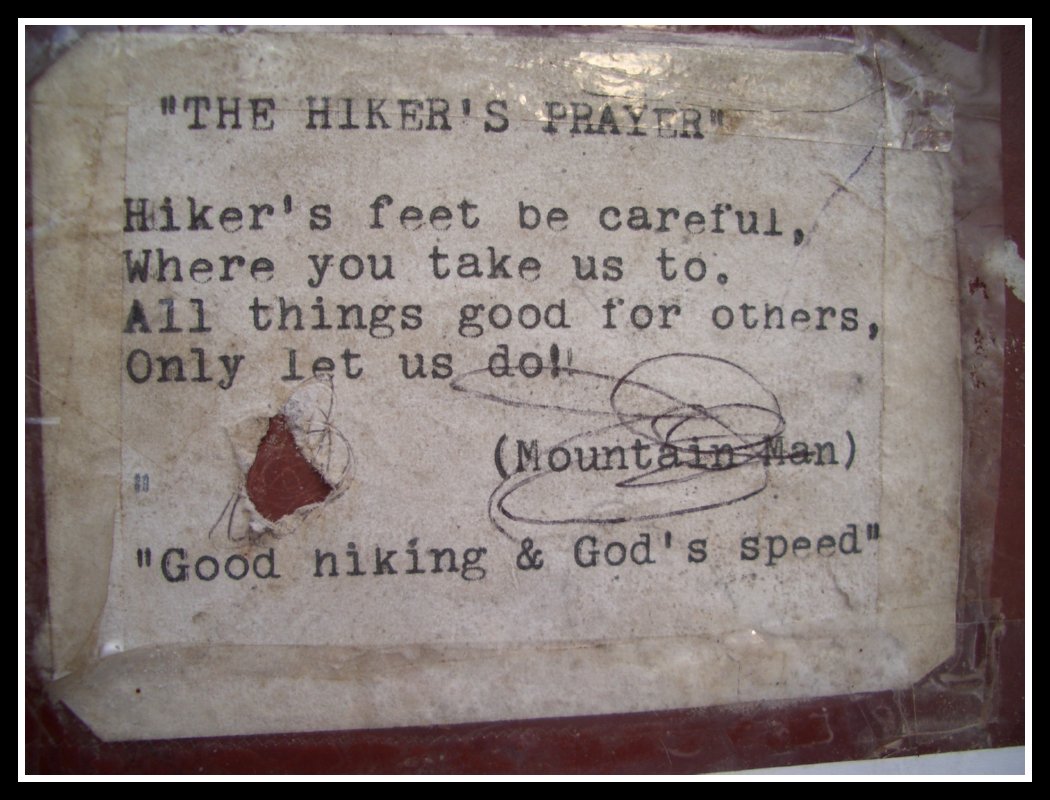 "THE HIKER'S PRAYER"
Hiker's feet be careful,
Where you take us to.
All things good for others,
Only let us do!!
(Mountain Man)
"
"Good hiking & God's speed"